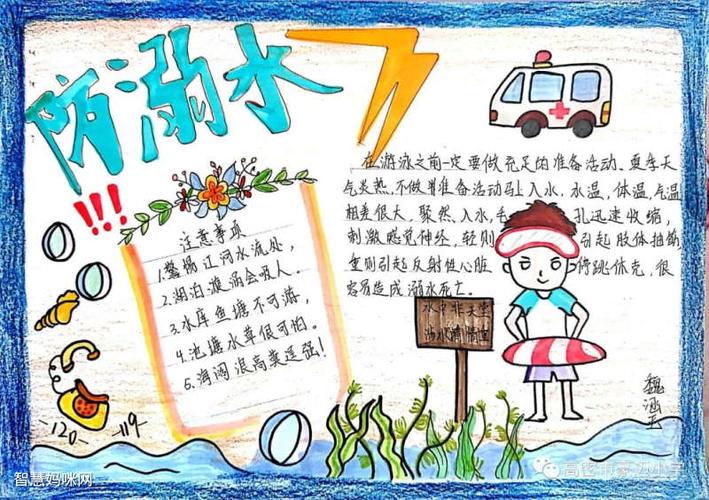 防溺水
!!!
注意事项
1.警惕江河水流处,
2.湖泊漩涡会吸人.
3.水库鱼塘不可游,
4.池塘水草很可怕。
5.海阔浪高莫逞强!
在游泳之前一定要做充足的准备活动、夏季天
气炎热,不做准备活动马上入水,水温,体温,气温
相差很大,骤然、入水,毛孔迅速收缩,
刺激感觉神经,轻则引起肢体抽筋
重则引起反射性心脏停跳休克,很
容易造成溺水死亡.
水中非天堂
120 119
魏涵
智慧妈咪网
高密市豪迈小学